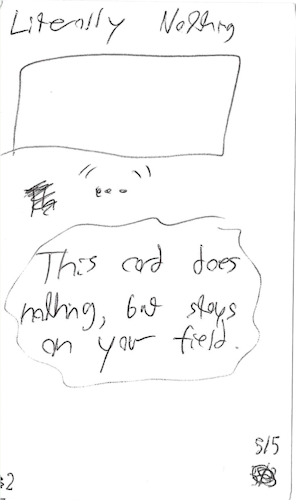 Literally Nothing
" ... "
This card does
nothing, but stays
on your field.
5/5
$2